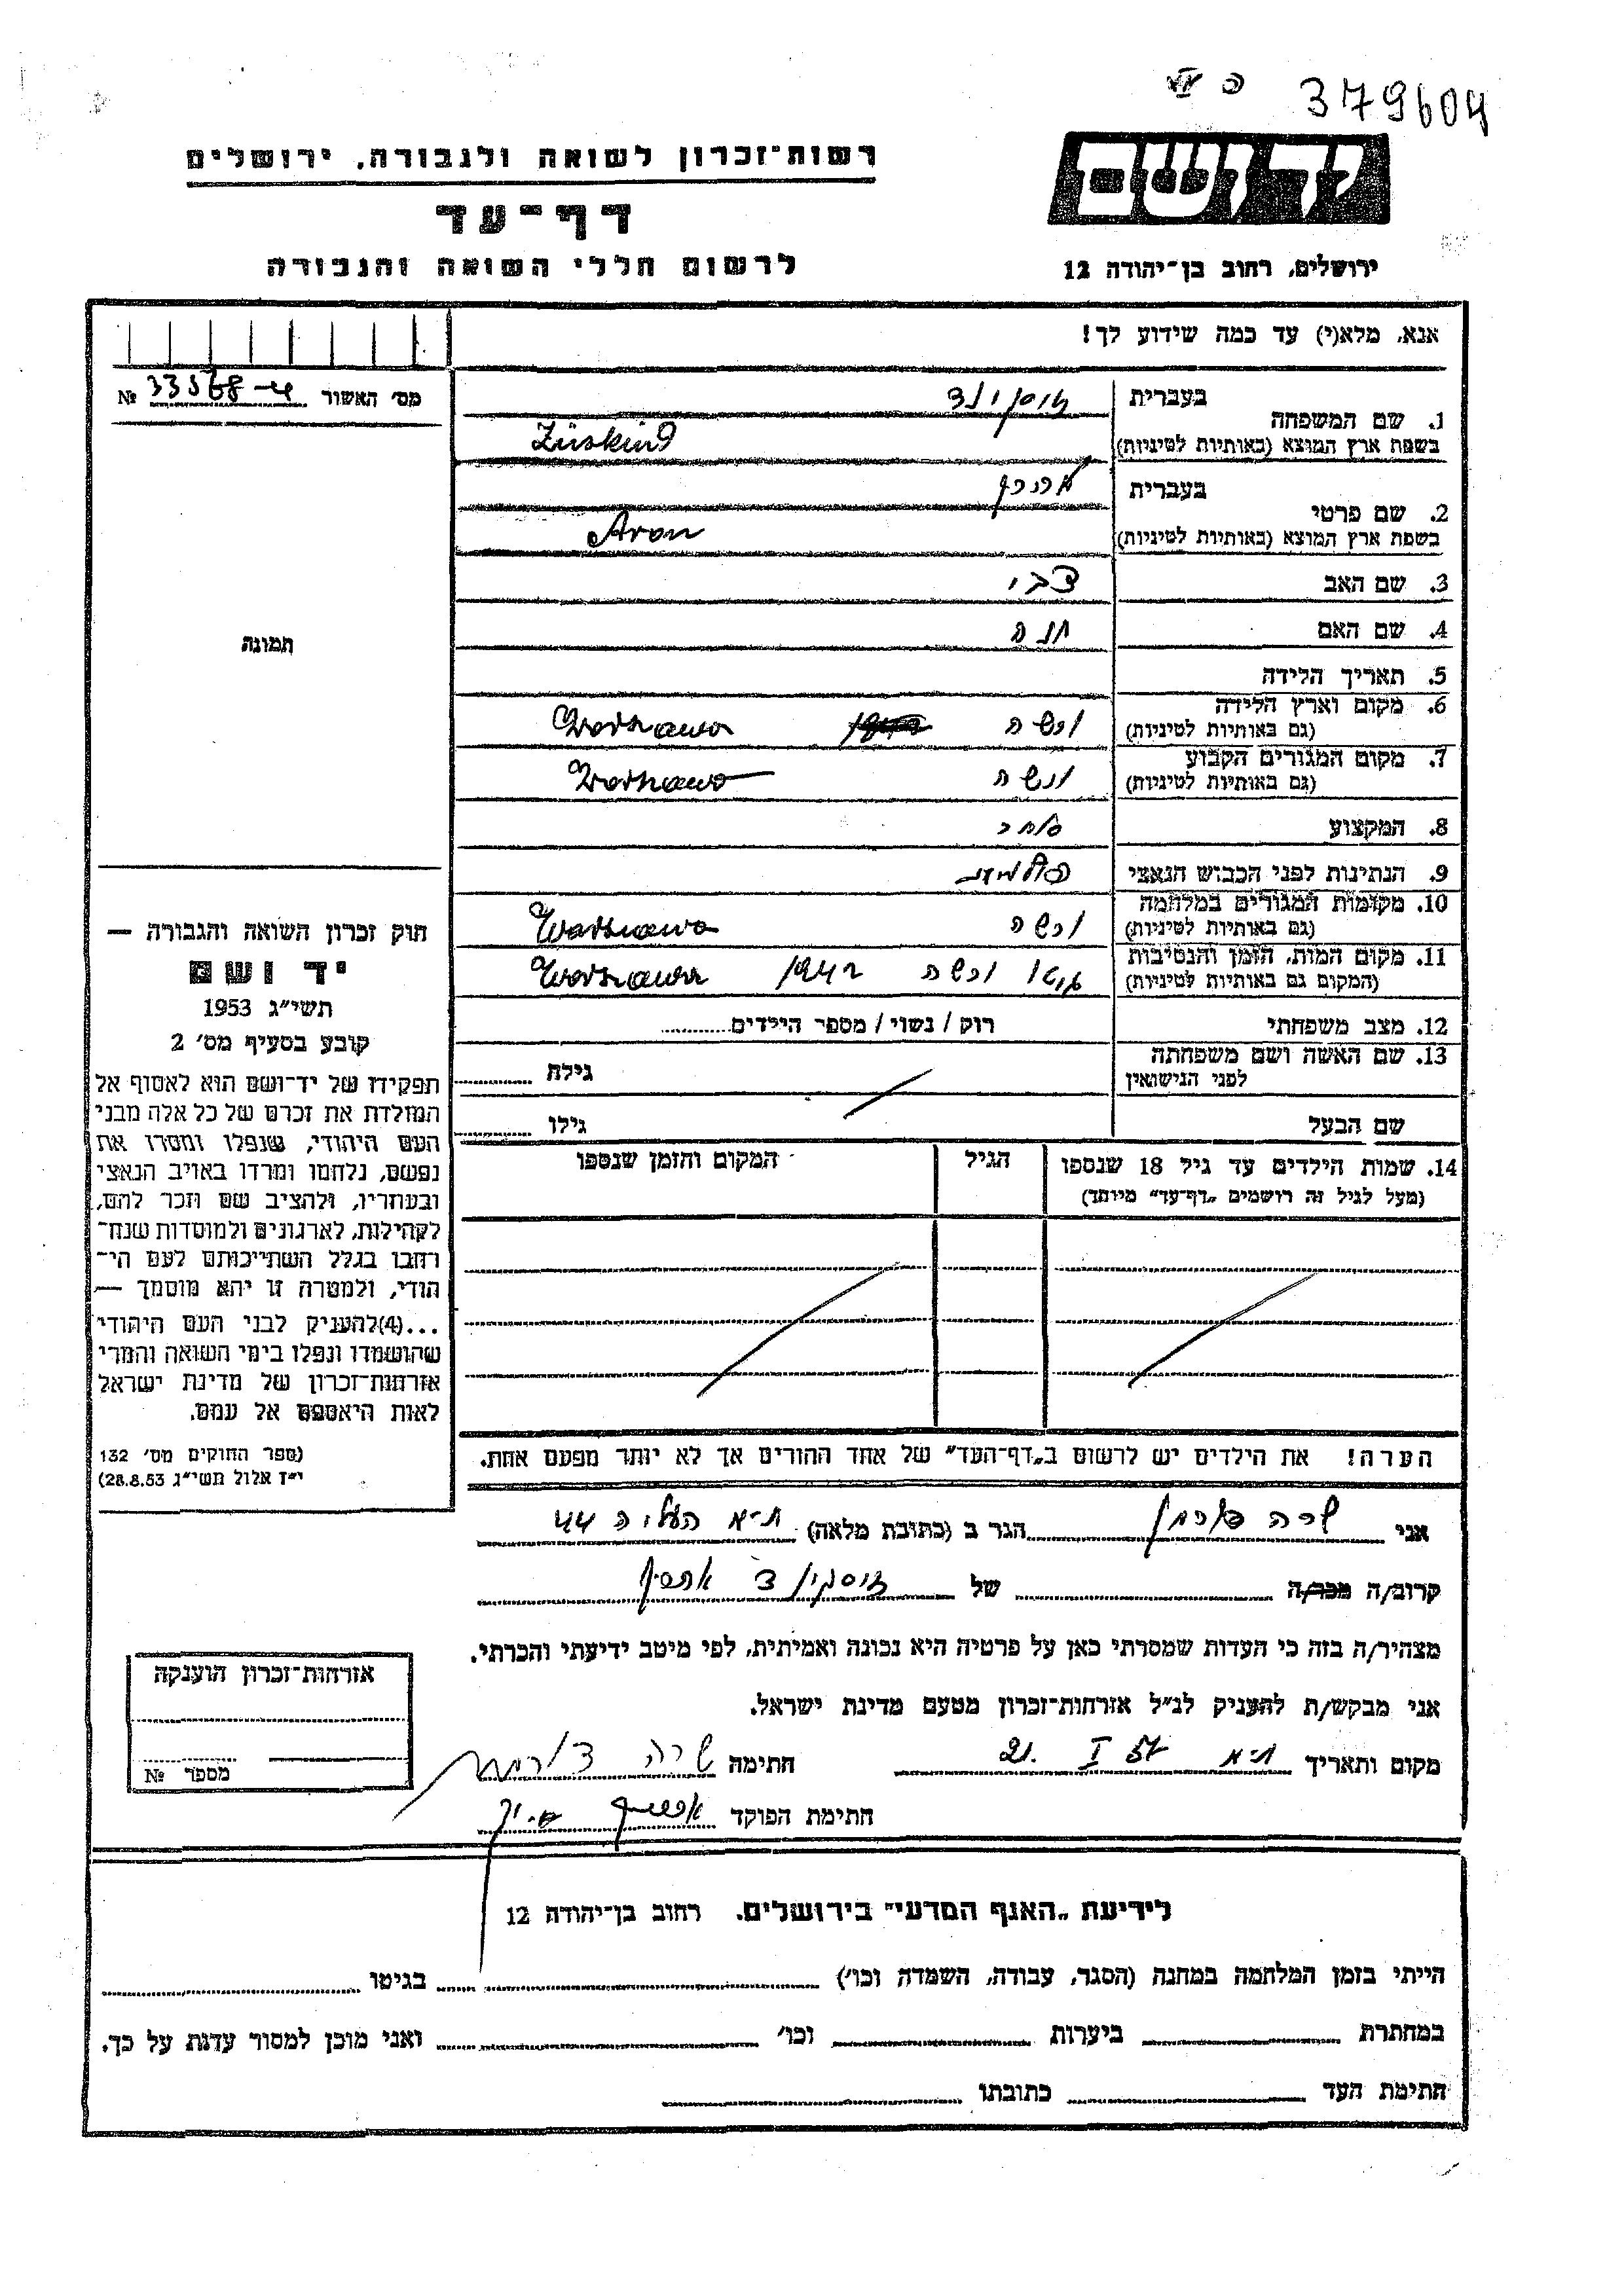 379604
רשות־זכרון לשואה ולגבורה, ירושלים
יד ושם
דף־עד
לרשום חללי השואה והגבורה
ירושלים, רחוב בן־יהודה 12
אנא, מלא(י) עד כמה שידוע לך!
מס׳ האשור № 33568
1. שם המשפחה
בעברית
זוסקינד
בשפת ארץ המוצא (באותיות לטיניות)
Züskind
2. שם פרטי
בעברית
אהרן
בשפת ארץ המוצא (באותיות לטיניות)
Aron
3. שם האב צבי
4. שם האם חנה
5. תאריך הלידה
6. מקום וארץ הלידה
(גם באותיות לטיניות)
ורשה Warszawa
7. מקום המגורים הקבוע
(גם באותיות לטיניות)
ורשה Warszawa
8. המקצוע סוחר
9. הנתינות לפני הכבוש הנאצי פולנית
10. מקומות המגורים במלחמה
(גם באותיות לטיניות)
ורשה Warszawa
11. מקום המות, הזמן והנסיבות
(המקום גם באותיות לטיניות)
גטו ורשה 1942 Warszawa
12. מצב משפחתי רוק / נשוי / מספר הילדים
13. שם האשה ושם משפחתה
לפני הנישואין
גילה
שם הבעל
גילו
14. שמות הילדים עד גיל 18 שנספו
(מעל לגיל זה רושמים „דף־עד״ מיוחד)
הגיל
המקום והזמן שנספו
הערה! את הילדים יש לרשום ב„דף־העד״ של אחד ההורים אך לא יותר מפעם אחת.
תמונה
חוק זכרון השואה והגבורה —
יד ושם
תשי״ג 1953
קובע בסעיף מס׳ 2
תפקידו של יד־ושם הוא לאסוף אל
המולדת את זכרם של כל אלה מבני
העם היהודי, שנפלו ומסרו את
נפשם, נלחמו ומרדו באויב הנאצי
ובעוזריו, ולהציב שם וזכר להם,
לקהילות, לארגונים ולמוסדות שנח־
רבו בגלל השתייכותם לעם הי־
הודי, ולמטרה זו יהא מוסמך —
...(4)להעניק לבני העם היהודי
שהושמדו ונפלו בימי השואה והמרי
אזרחות־זכרון של מדינת ישראל
לאות היאספם אל עמם.
(ספר החוקים מס׳ 132
י״ז אלול תשי״ג 28.8.53)
אני שרה הגר ב (כתובת מלאה) ת״א העליה 44
קרוב/ה מכר/ה של זוסקינד אהרן
מצהיר/ה בזה כי העדות שמסרתי כאן על פרטיה היא נכונה ואמיתית, לפי מיטב ידיעתי והכרתי.
אני מבקש/ת להעניק לנ״ל אזרחות־זכרון מטעם מדינת ישראל.
מקום ותאריך ת״א 21. I 57 חתימה שרה
חתימת הפוקד
אזרחות־זכרון הוענקה
מספר №
לידיעת „האגף המדעי״ בירושלים. רחוב בן־יהודה 12
הייתי בזמן המלחמה במחנה (הסגר, עבודה, השמדה וכו׳) בגיטו
במחתרת ביערות וכו׳ ואני מוכן למסור עדות על כך.
חתימת העד כתובתו